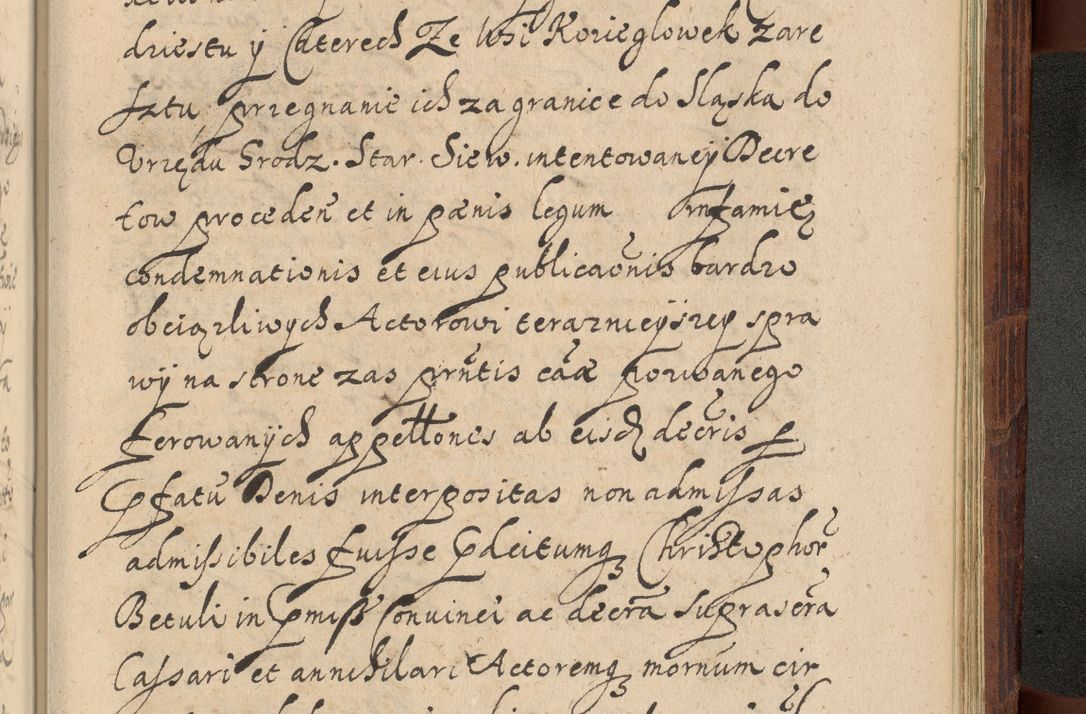 dziestu ÿ Czterech Ze Wsi Kozieglowek zare
sztu przegnanie ich za granice do Sląska do
Vrzędu Grodz. Star. Siew. intentowaneÿ Decre
tow proceden̄ et in pœnis legum infamię
condemnationis et eius publicaōnis bardzo
obciązliwych Actorowi teraznieÿszeÿ spra
wÿ na strone zas prn̄tis cāæ powoanego
ferowanÿch appellōnes ab eisd decr̄is p
pfatū Denis interpositas non admissas
admissibiles fuisse pdcitumq Christophor̄
Betuli in pmiss Convinci ac decr̄a suprascr̄a
Cassari et annihilari Actoremq mornum cir